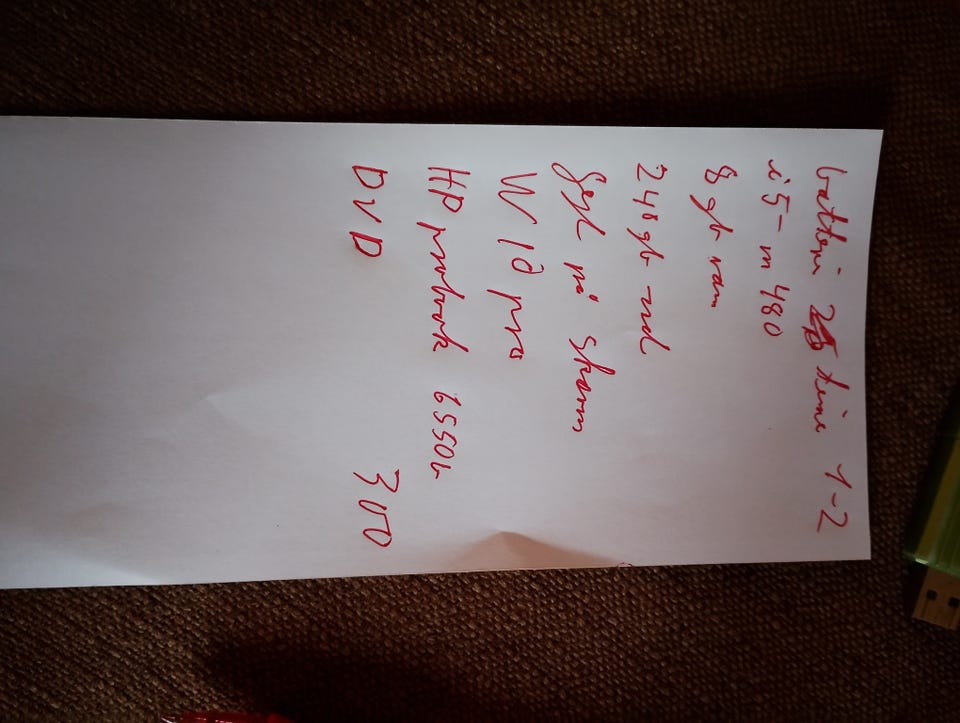 batteri time 1-2
i5-m480
8 gb ram
240 gb ssd
på skærm
W10 pro
HP probook 6550b
DVD 300